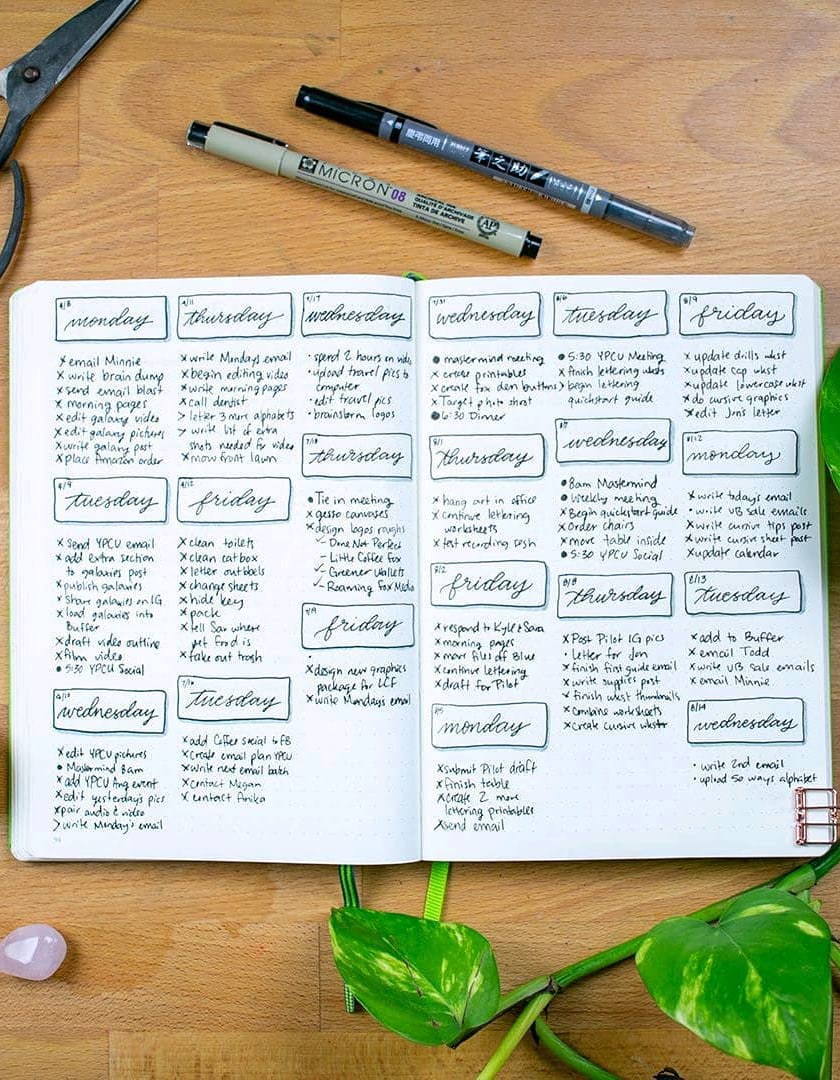 慶弔両用
筆之助
MICRON 08
QUALITÉ D'ARCHIVAGE
TINTA DE ARCHIVE
AP
monday
x email Minnie
x write brain dump
x send email blast
x morning pages
x edit galaxy video
x edit galaxy pictures
x write galaxy post
x place Amazon order
tuesday
x Send YPCU email
x add extra section
to galaxies post
x publish galaxies
x Share galaxies on IG
x load galaxies into
Buffer
x draft video outline
x film video
• 5:30 YPCU Social
wednesday
x edit YPCU pictures
• Mastermind 8am
x add YPCU Aug event
x edit yesterday's pics
x pair audio & video
> write Monday's email
thursday
x write Monday's email
x begin editing video
x write morning pages
x call dentist
> letter 3 more alphabets
> write list of extra
shots needed for video
x mow front lawn
friday
x clean toilets
x clean catbox
x letter outbbels
x change sheets
x hide key
x pack
x tell Sar where
pet food is
x take out trash
tuesday
x add Coffee Social to FB
x Create email plan YPCU
x write next email batch
x contact Megan
x contact Anika
7/17
wednesday
• spend 2 hours on video
• upload travel pics to
computer
• edit travel pics
• brainstorm logos
7/18
thursday
• Tie in meeting
x gesso canvases
x design logos roughs
✓ Done Not Perfect
✓ Little Coffee Fox
✓ Greener Wallets
✓ Roaming Fox Media
friday
x design new graphics
package for LCF
x write Mondays email
7/31
wednesday
• mastermind meeting
x create printables
x create fox den buttons
x Target photo shoot
• 6:30 Dinner
8/1
thursday
x hang art in office
x continue lettering
worksheets
x test recording sesh
8/2
friday
x respond to Kyle & Sara
x morning pages
x move files off Blue
x continue lettering
x draft for Pilot
monday
x submit Pilot draft
x finish table
x Create 2 more
lettering printables
x send email
8/6
tuesday
• 5:30 YPCU Meeting
x finish lettering wksts
> begin lettering
quickstart guide
wednesday
• 8am Mastermind
• Weekly meeting
x Begin quickstart guide
x Order chairs
x move table inside
• 5:30 YPCU Social
8/8
thursday
x Post Pilot IG pics
• letter for Jon
x finish first guide email
x write supplies post
x finish wkst thumbnails
x combine worksheets
x create cursive wksts
8/9
friday
x update drills wkst
x update cap wkst
x update lowercase wkst
x do cursive graphics
x edit Jon's letter
8/12
monday
x write today's email
• write VB sale emails
x write cursive tips post
x write cursive sheet post
x update calendar
8/13
tuesday
x add to Buffer
x email Todd
x write VB sale emails
x email Minnie
8/14
wednesday
• write 2nd email
• upload 50 ways alphabet